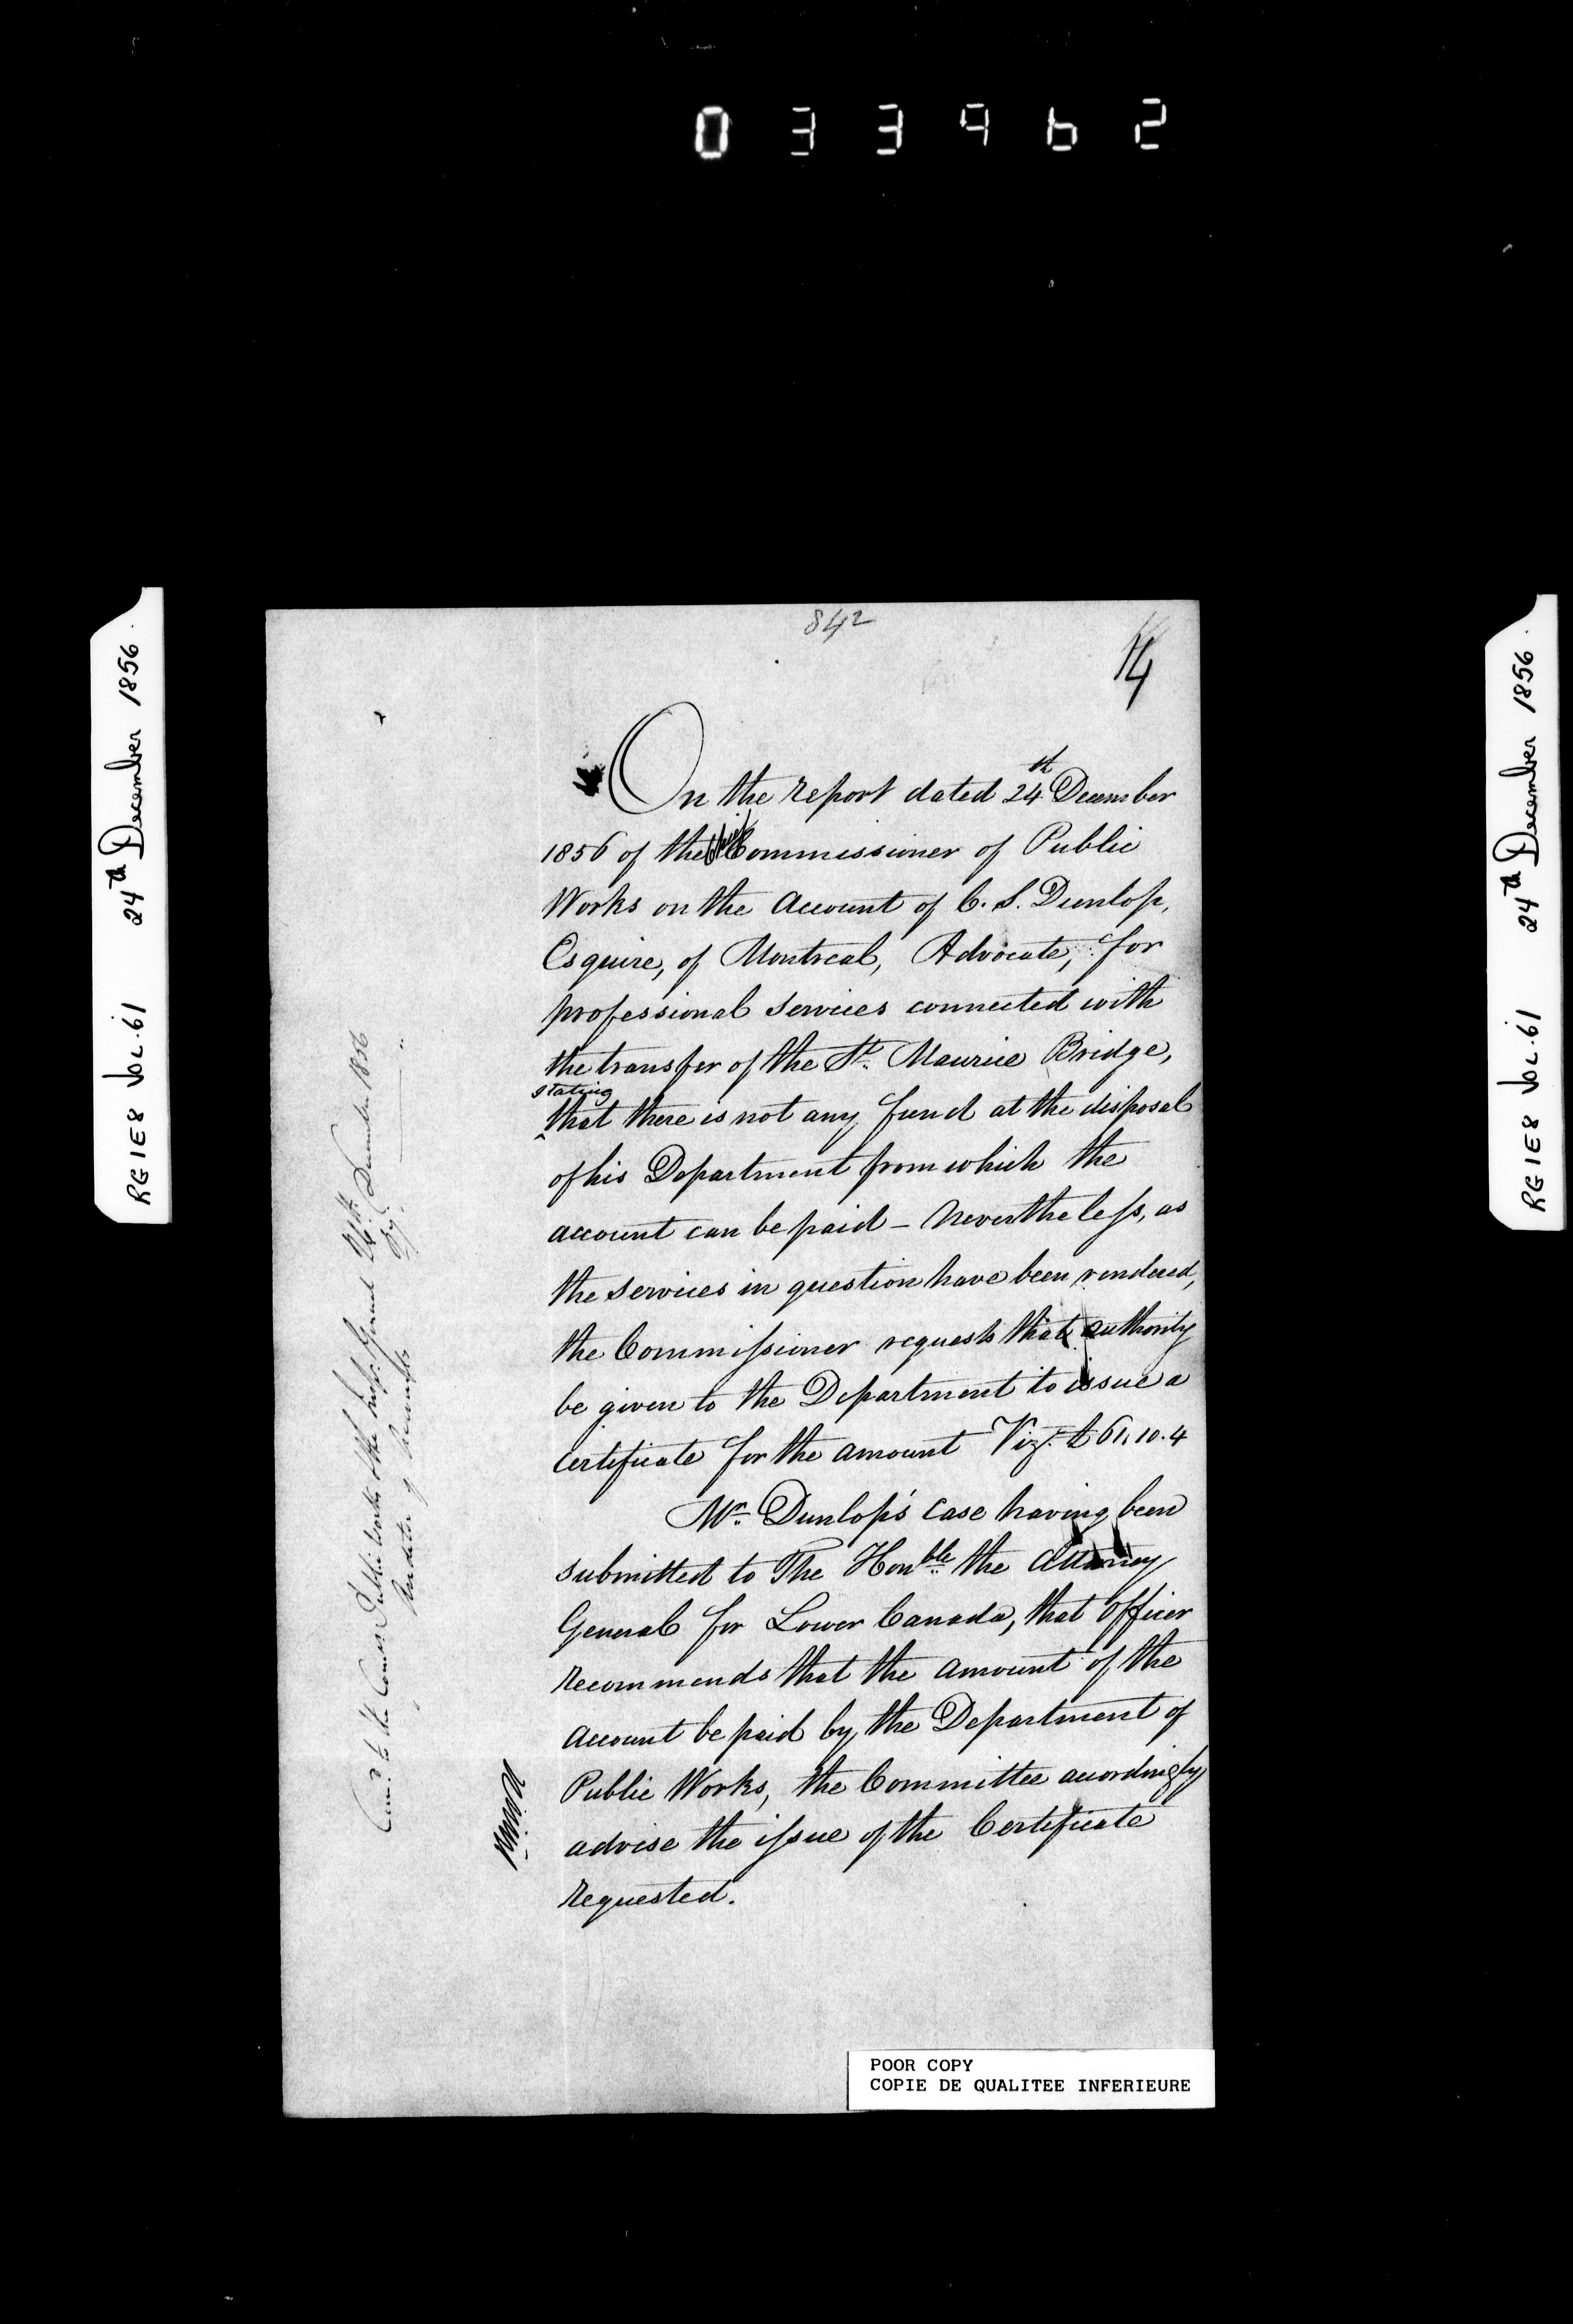 033962
RG1E8 Vol. 61 24th December 1856.
842
14
On the report dated 24th December
1856 of the Commissioner of Public
Works on the Account of C. S. Dunlop,
Esquire, of Montreal, Advocate, for
professional services connected with
the transfer of the St. Maurice Bridge,
stating
that there is not any fund at the disposal
of his Department from which the
account can be paid – Nevertheless, as
the services in question have been rendered,
the Commissioner requests that authority
be given to the Department to issue a
certificate for the amount Vizt. £61.10.4
Mr. Dunlop's case having been
submitted to The Honble. the Attorney
General for Lower Canada, that Officer
recommends that the amount of the
account be paid by the Department of
Public Works, the Committee accordingly
advise the issue of the Certificate
requested.
to the Comr Public Works & the Insp. General
December 1856
POOR COPY
COPIE DE QUALITEE INFERIEURE
RG1E8 Vol. 61 24th December 1856.